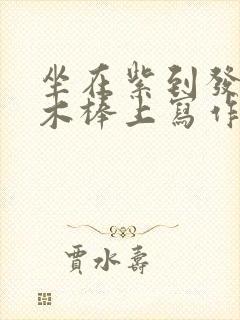 坐在紫到發
木棒上寫作
賈水壽